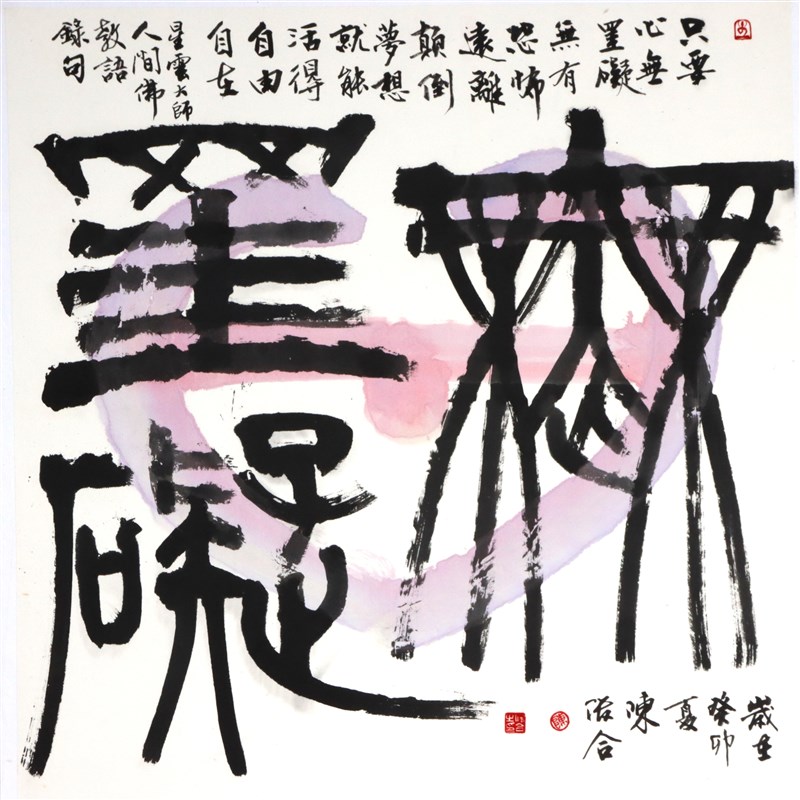 只要
心無
罣礙
無有
恐怖
遠離
顛倒
夢想
就能
活得
自由
自在
星雲大師
人間佛
教語
錄句
無
罣礙
歲在
癸卯
夏
陳
合